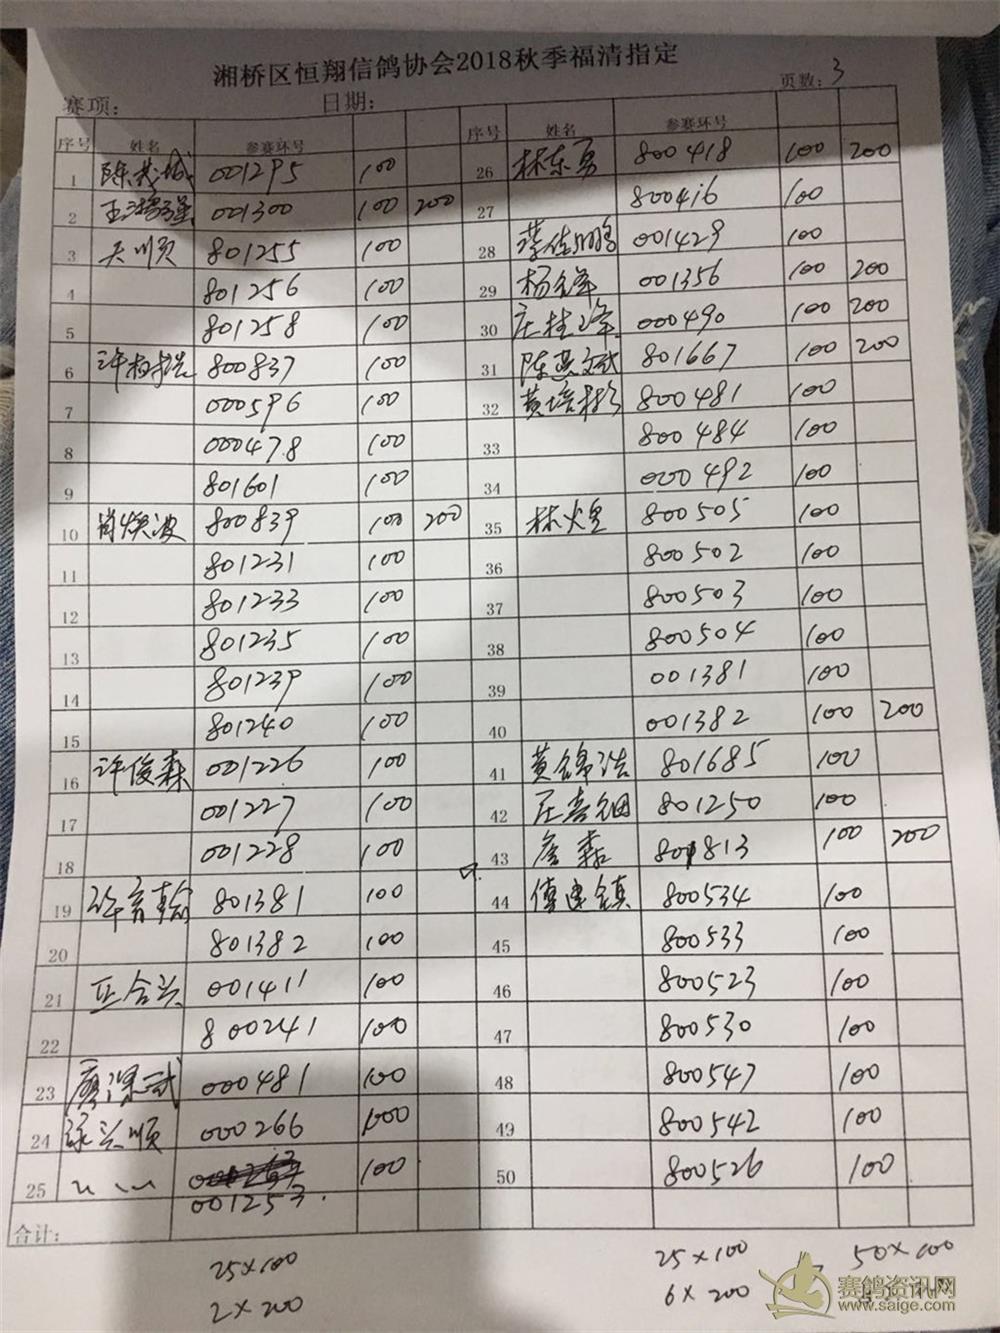 湘桥区恒翔信鸽协会2018秋季福清指定
赛项: 日期: 页数: 3
序号 姓名 参赛环号 序号 姓名 参赛环号
1 001295 100 26 林东勇 800418 100 200
2 001300 100 200 27 800416 100
3 801255 100 28 001429 100
4 801256 100 29 001356 100 200
5 801258 100 30 000490 100 200
6 800837 100 31 801667 100 200
7 000596 100 32 800481 100
8 000478 100 33 800484 100
9 801601 100 34 000492 100
10 肖焕波 800839 100 200 35 800505 100
11 801231 100 36 800502 100
12 801233 100 37 800503 100
13 801235 100 38 800504 100
14 801239 100 39 001381 100
15 801240 100 40 001382 100 200
16 许俊森 001226 100 41 黄锦浩 801685 100
17 001227 100 42 801250 100
18 001228 100 43 801813 100 200
19 许育翰 801381 100 44 傅建镇 800534 100
20 801382 100 45 800533 100
21 001411 100 46 800523 100
22 800241 100 47 800530 100
23 000481 100 48 800547 100
24 000266 100 49 800542 100
25 001253 100 50 800526 100
合计:
25×100 25×100 50×100
2×200 6×200
赛鸽资讯网
www.saige.com